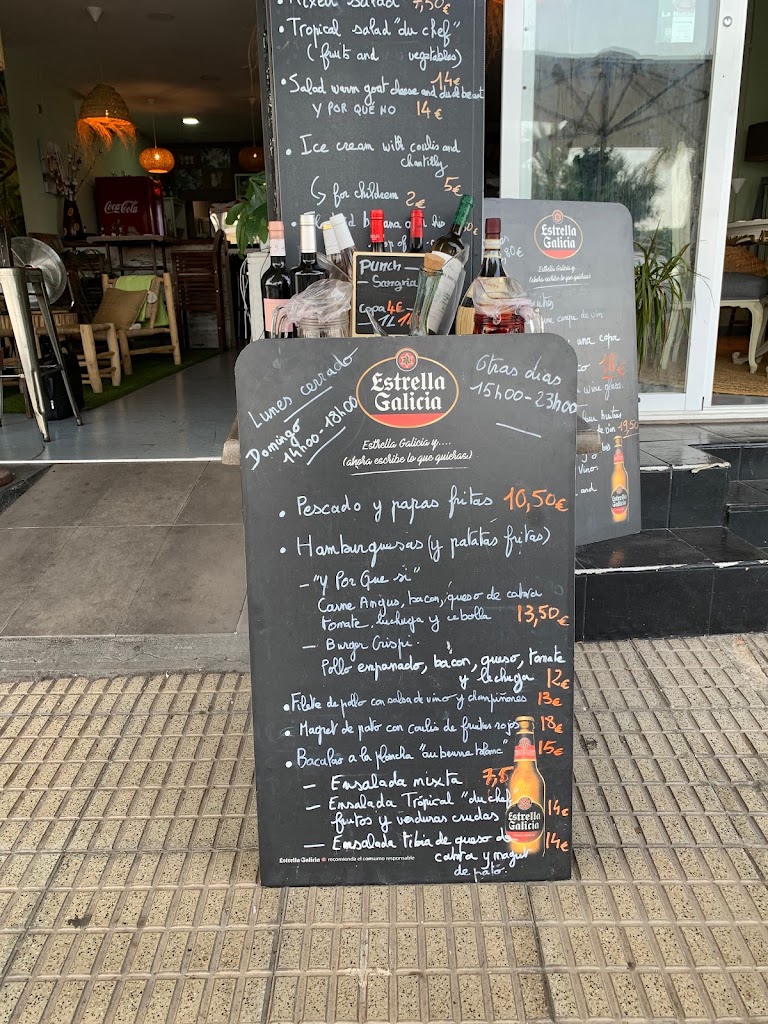 Mixed Salad 7,50€
• Tropical salad "du chef"
(fruits and vegetables)
14€
• Salad warm goat cheese and
Y POR QUE NO 14€
• Ice cream with coulis and
chantilly
5€
↳ for children 2€
Coca-Cola
PUNCH
– Sangria
Copa 4€
1L
La Nuit
Estrella
Galicia
Estrella Galicia y....
(ahora escribe lo que quieras)
copa de vin
una copa
wine glass.
19,50
Vinos
and
Lunes cerrado
Domingo
14h00-18h00
Estrella
Galicia
Otras dias
15h00-23h00
Estrella Galicia y....
(ahora escribe lo que quieras)
• Pescado y papas fritas 10,50€
• Hamburguesas (y patatas fritas)
– "Y Por Que si"
Carne Angus, bacon, queso de cabra
tomate, lechuga y cebolla 13,50€
– Burger Crispi.
Pollo empanado, bacon, queso, tomate
y lechuga 12€
• Filete de pollo con salsa de vino y champiñones 13€
• Magret de pato con coulis de frutos rojos 18€
• Bacalao a la plancha "au beurre blanc" 15€
– Ensalada mixta 7,5
– Ensalada Tropical "du chef
frutos y verduras crudas 14€
– Ensalada tibia de queso de 14€
cabra y magret
de pato.
Estrella
Galicia
Estrella Galicia recomienda el consumo responsable